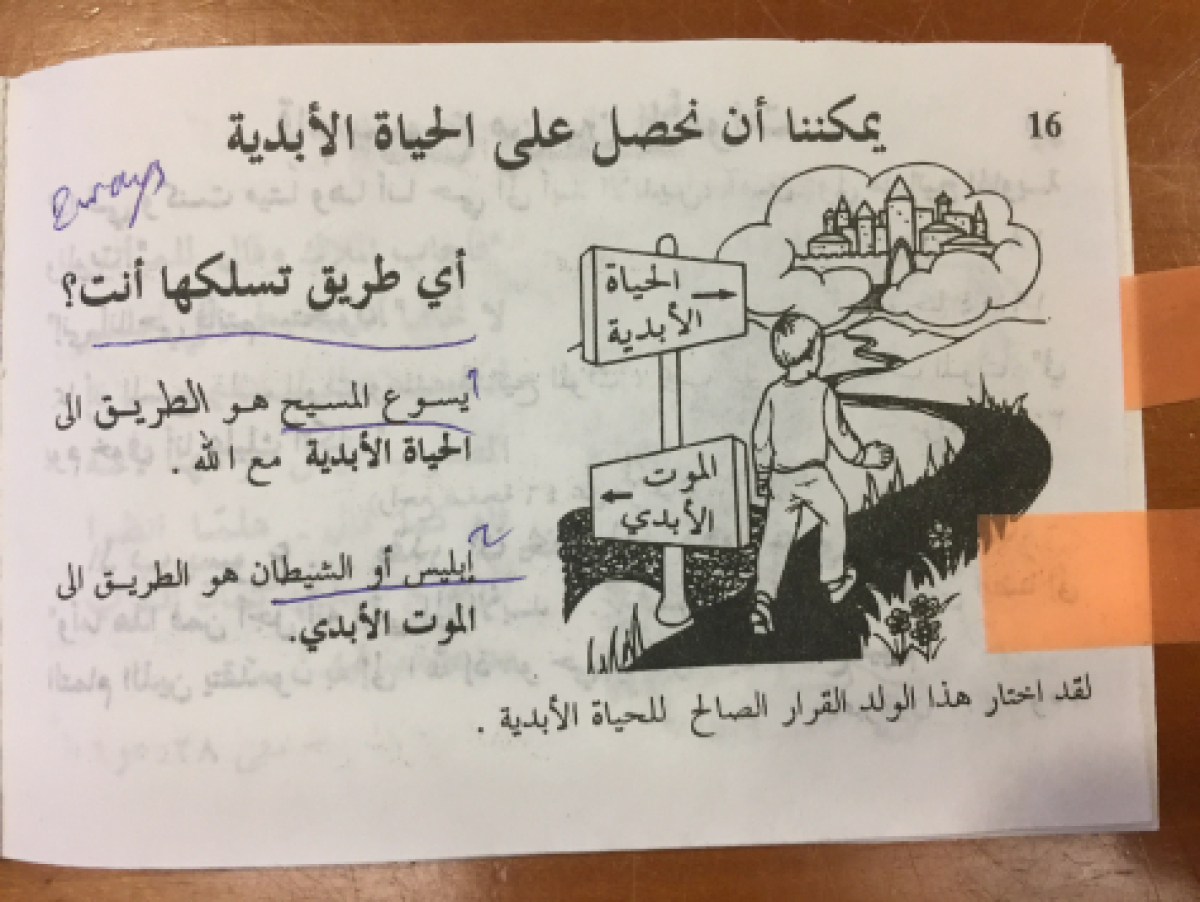 16
يمكننا أن نحصل على الحياة الأبدية
2 ways
أي طريق تسلكها أنت؟
الحياة
الأبدية
الموت
الأبدي
يسوع المسيح هو الطريق الى
الحياة الأبدية مع الله .
إبليس أو الشيطان هو الطريق الى
الموت الأبدي.
لقد اختار هذا الولد القرار الصالح للحياة الأبدية .